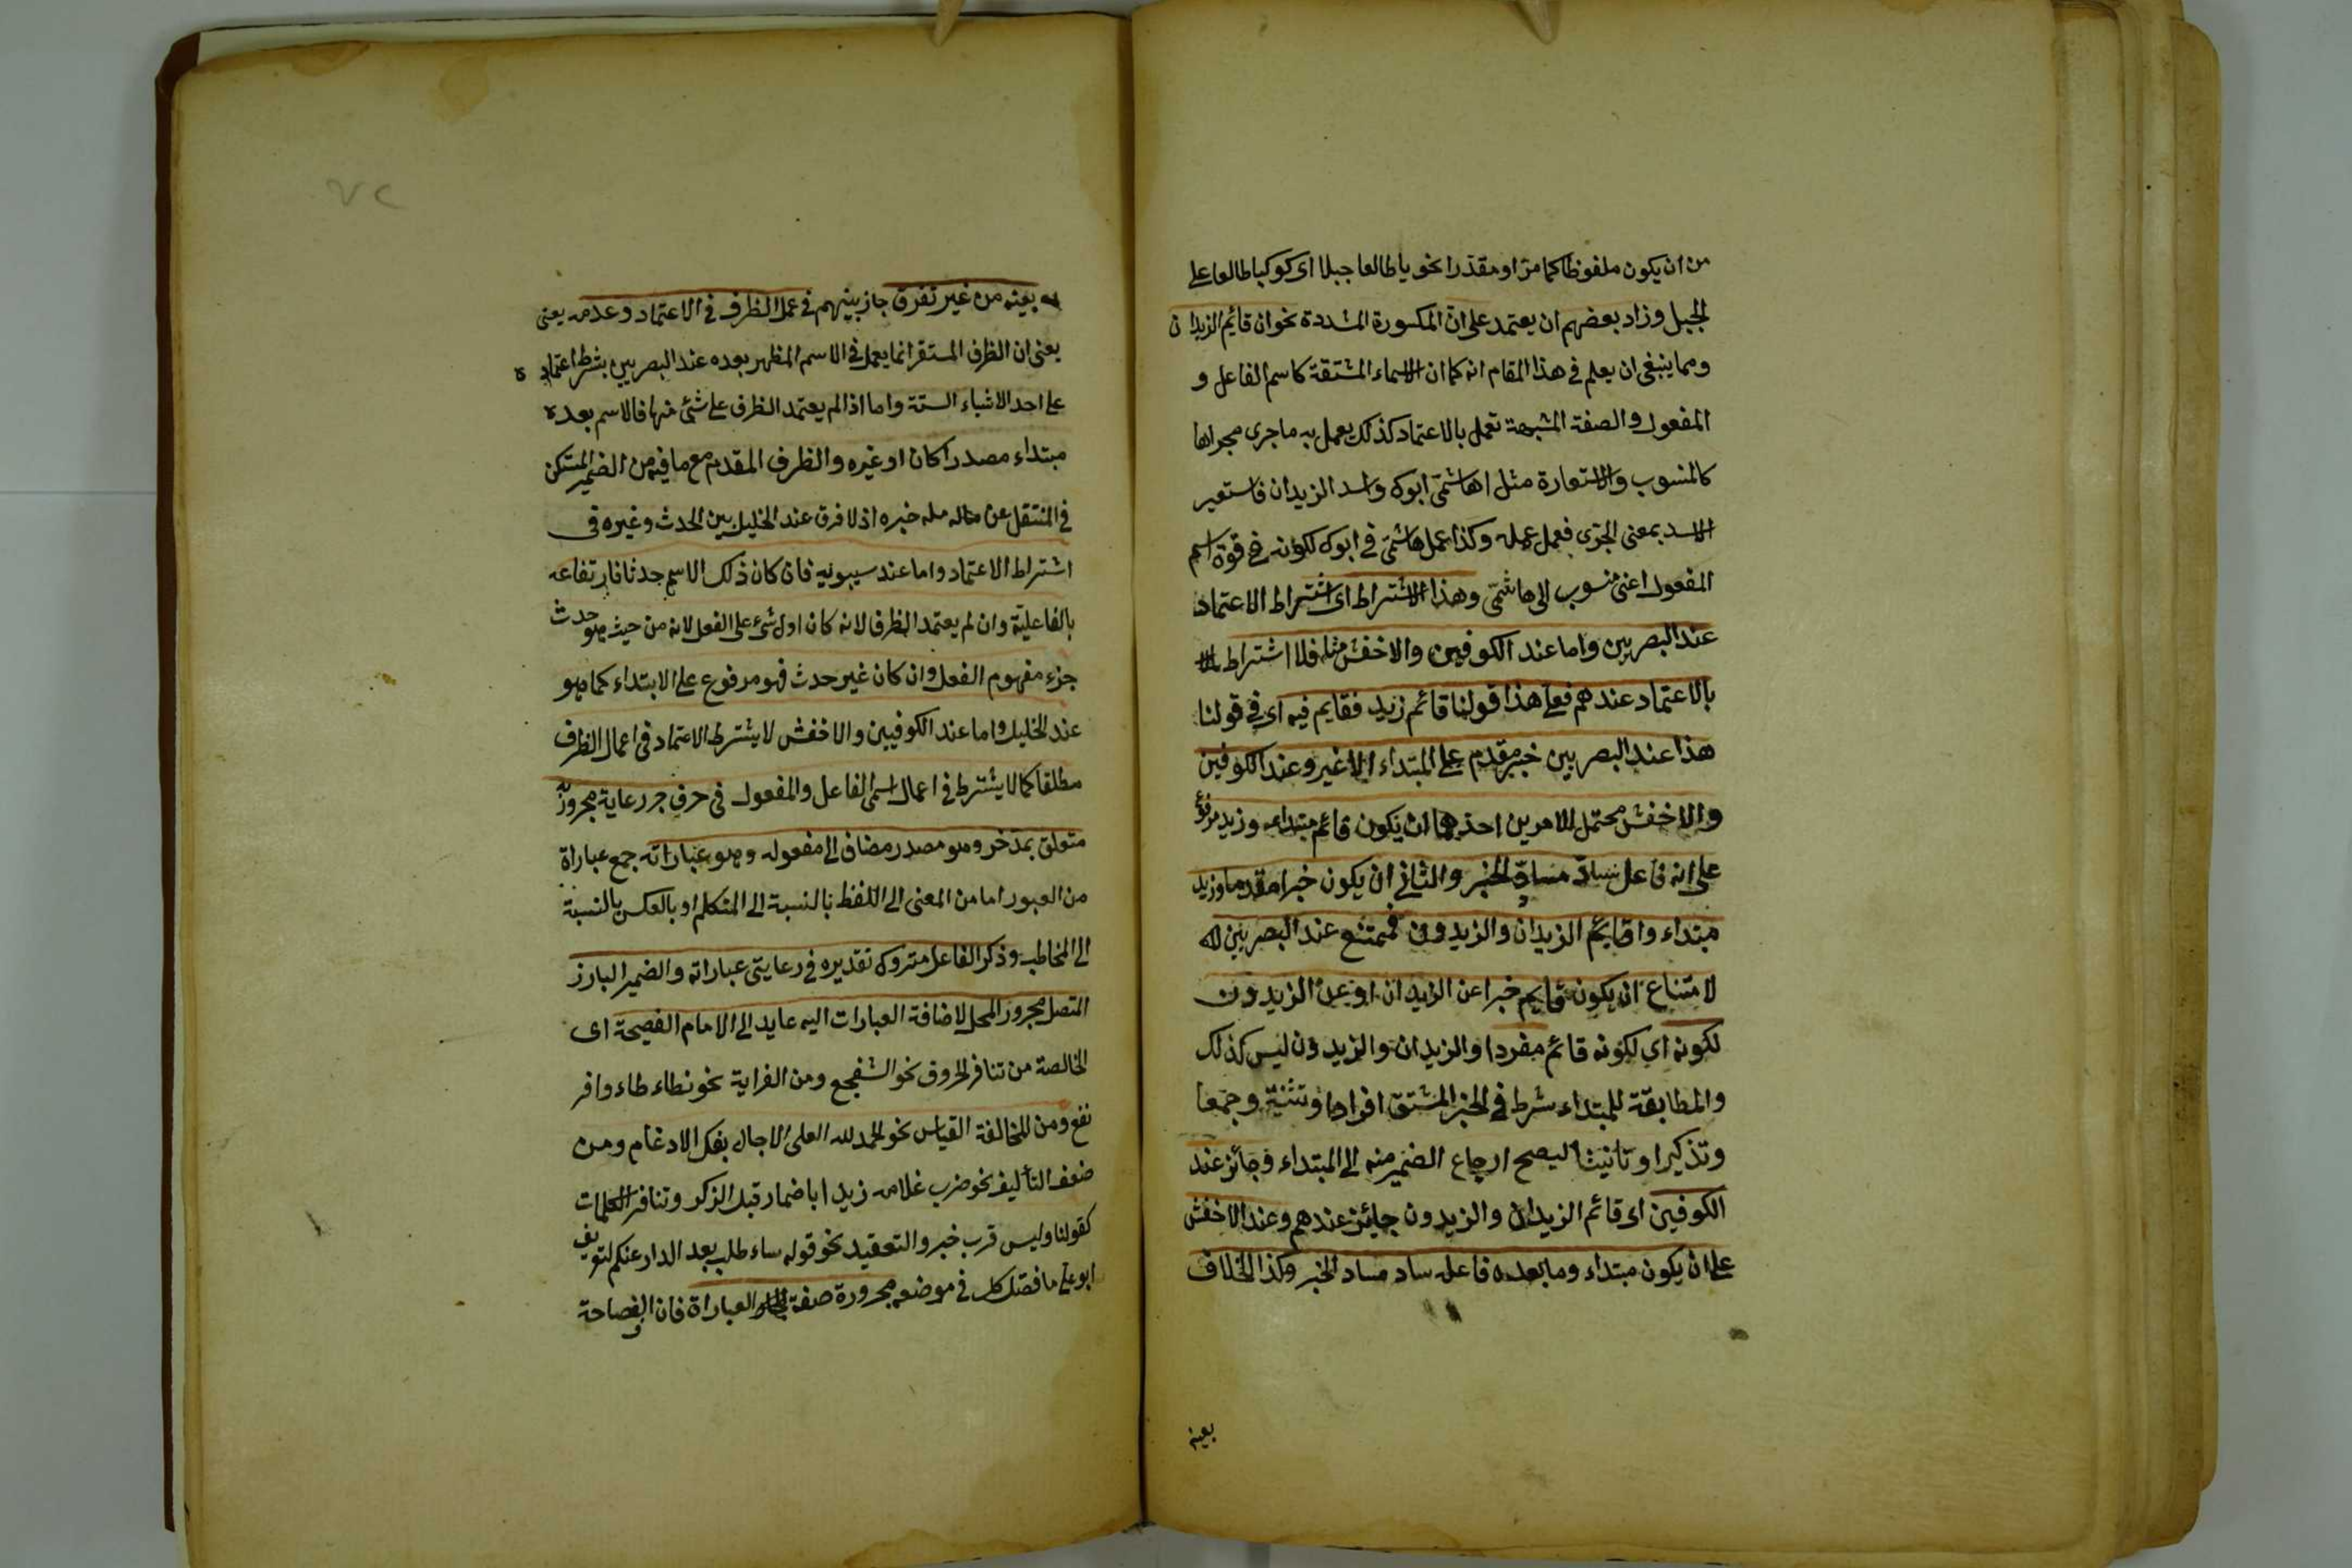 من ان يكون ملفوظا كما مرّ او مقدرا نحو يا طالعا جبلا اى كوكبا طالعا على
الجبل وزاد بعضهم ان يعتمد على انّ المكسورة المشددة نحو ان قايم الزيدان
ومما ينبغى ان يعلم فى هذا المقام انه كما ان الاسماء المشتقة كاسم الفاعل و
المفعول والصفة المشبهة تعمل بالاعتماد كذلك يعمل به ما جرى مجراها
كالمنسوب والاستعارة مثل اهاشمىّ ابوك واسد الزيدان فاستعير
الاسد بمعنى الجرى فعمل عمله وكذا عمل هاشمىّ فى ابوك لكونه فى قوة اسم
المفعول اعنى منسوب الى هاشمىّ وهذا الاشتراط اى اشتراط الاعتماد
عند البصريين واما عند الكوفيين والاخفش مثله فلا اشتراط
بالاعتماد عندهم فعلى هذا قولنا قائم زيد فقايم فيه اى فى قولنا
هذا عند البصريين خبر مقدم على المبتداء لا غير وعند الكوفين
والاخفش محتمل للامرين احدهما ان يكون قائم مبتداء وزيد مرفوع
على انه فاعل سادّ مسادّ الخبر والثانى ان يكون خبرا مقدما وزيد
مبتداء واقايم الزيدان والزيدون فممتنع عند البصريين
لامتناع ان يكون قايم خبرا عن الزيدان او عن الزيدون
لكونه اى لكونه قائم مفردا والزيدان والزيدون ليس كذلك
والمطابقة للمبتداء شرط فى الخبر المشتق افرادا وتثنية وجمعا
وتذكيرا وتانيثا ليصح ارجاع الضمير منه الى المبتداء وجائز عند
الكوفين اى قائم الزيدان والزيدون جائز عندهم وعند الاخفش
على ان يكون مبتداء وما بعده فاعله ساد مساد الخبر وكذا الخلاف
بعينه
٧٢
بعينه من غير تفرق جاز بينهم فى عمل الظرف فى الاعتماد وعدمه يعنى
يعنى ان الظرف المستقر انما يعمل فى الاسم المظهر بعده عند البصريين بشرط اعتماده
على احد الاشياء الستة واما اذا لم يعتمد الظرف على شئ منها فالاسم بعده
مبتداء مصدرا كان او غيره والظرف المقدم مع ما فيه من الضمير المستكن
فى المنتقل عن خبره اذ لا فرق عند الخليل بين الحدث وغيره فى
اشتراط الاعتماد واما عند سيبويه فان كان ذلك الاسم حدثا فارتفاعه
بالفاعلية وان لم يعتمد الظرف لانه كان اول شىء على الفعل لانه من حيث هو حدث
جزء مفهوم الفعل وان كان غير حدث فهو مرفوع على الابتداء كما هو
عند الخليل واما عند الكوفيين والاخفش لا يشترط الاعتماد فى اعمال الظرف
مطلقا كما لا يشترط فى اعمال اسمى الفاعل والمفعول فى حرف جر رعاية مجرور به
متعلق بمدخر وهو مصدر مضاف الى مفعوله وهو عباراته جمع عباراة
من العبور اما من المعنى الى اللفظ بالنسبة الى المتكلم او بالعكس بالنسبة
الى المخاطب وذكر الفاعل متروك تقديره فى رعايتى عباراته والضمير البارز
المتصل مجرور المحل لاضافة العبارات اليه عايد الى الامام الفصيحة اى
الخالصة من تنافر الحروف نحو ومن الغراية نحو
نفع ومن المخالفة القياس نحو الحمد لله العلى الاجلل بفك الادغام ومن
ضعف التأليف نحو ضرب غلامه زيدا باضمار قبل الزكر وتنافر الكلمات
كقولنا وليس قرب خبر والتعقيد نحو قوله ساء طلب بعد الدار عنكم لتعريف
ابو على ما فصل كل فى موضعه مجرورة صفة العباراة فان الفصاحة